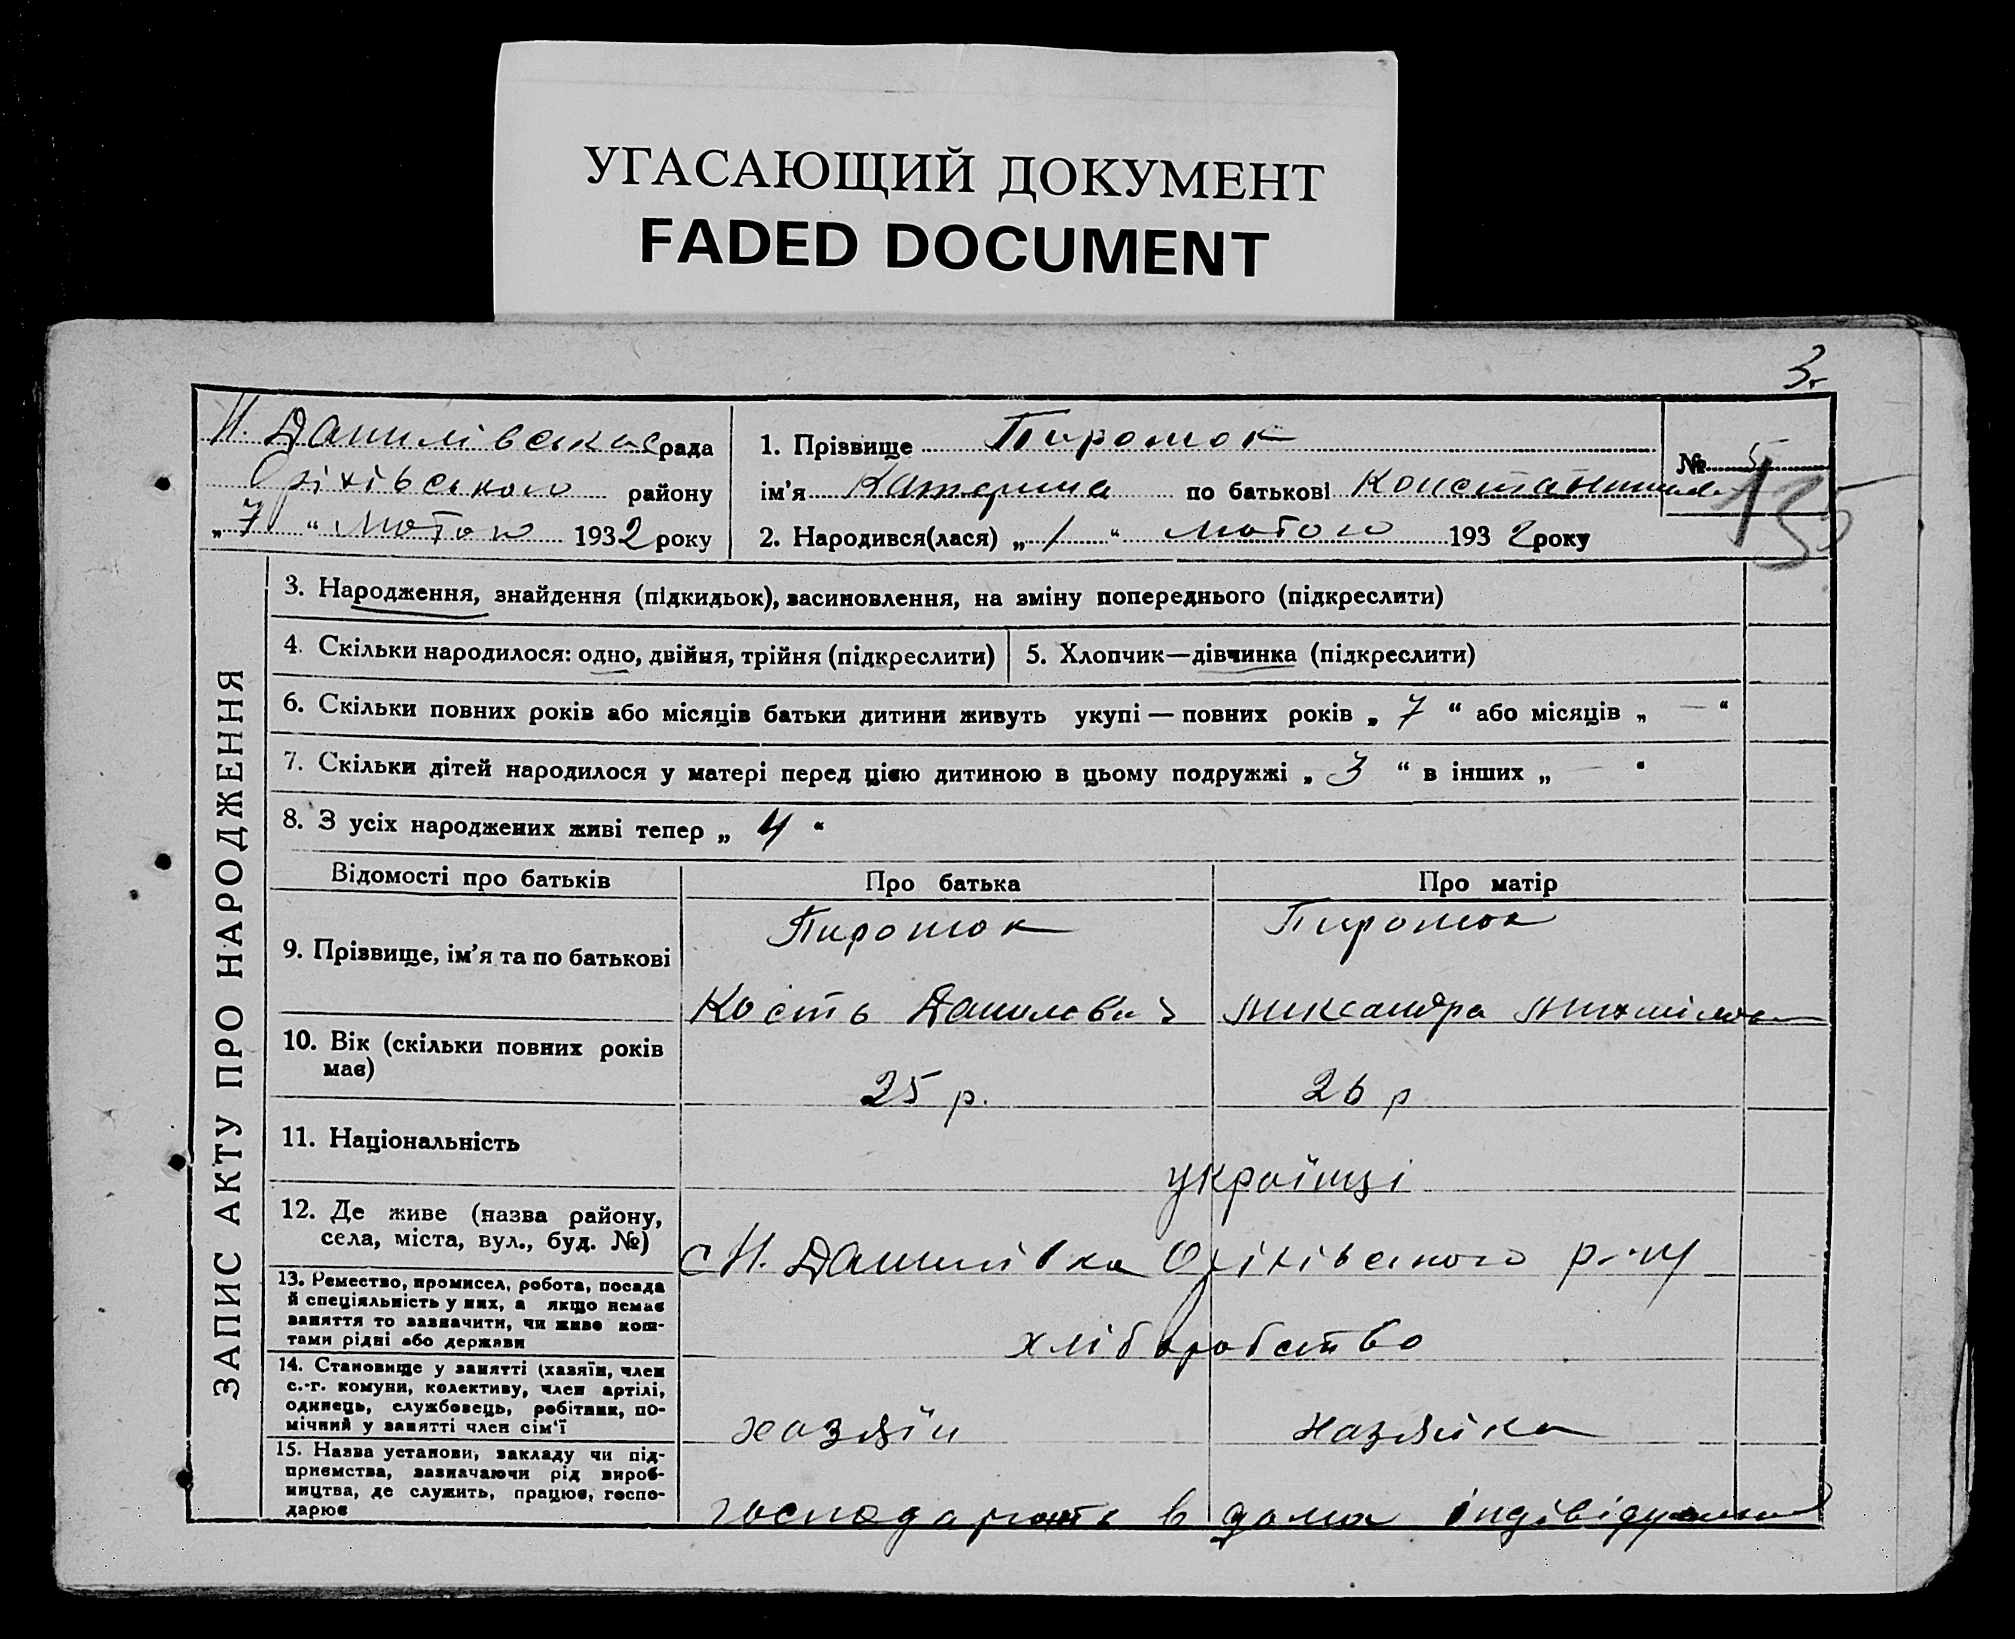 УГАСАЮЩИЙ ДОКУМЕНТ
FADED DOCUMENT
3.
Н. Данилівська рада
Оріхівського району
„ 7 “ лютого 1932 року
1. Прізвище Пиротюк
ім’я Катерина по батькові
2. Народився(лася) „ 1 “ лютого 1932 року
№ 5
15
ЗАПИС АКТУ ПРО НАРОДЖЕННЯ
3. Народження, знайдення (підкидьок), засиновлення, на зміну попереднього (підкреслити)
4. Скільки народилося: одно, двійня, трійня (підкреслити)
5. Хлопчик—дівчинка (підкреслити)
6. Скільки повних років або місяців батьки дитини живуть укупі — повних років „ 7 “ або місяців „ — “
7. Скільки дітей народилося у матері перед цією дитиною в цьому подружжі „ 3 “ в інших „ — “
8. З усіх народжених живі тепер „ 4 “
Відомості про батьків
Про батька
Про матір
9. Прізвище, ім’я та по батькові
Пиротюк
Кость Данилович
Пиротюк
10. Вік (скільки повних років
має)
25 р.
26 р
11. Національність
українці
12. Де живе (назва району,
села, міста, вул., буд. №)
с Н. Данилівка Оріхівського р-ну
13. Ремество, промисел, робота, посада
й спеціяльність у них, а якщо немає
заняття то зазначити, чи живе кош-
тами рідні або держави
хліборобство
14. Становище у занятті (хазяїн, член
с.-г. комуни, колективу, член артілі,
одинець, службовець, робітник, по-
мічний у занятті член сім’ї
хазяїн
хазяйка
15. Назва установи, закладу чи під-
приємства, зазначаючи рід вироб-
ництва, де служить, працює, госпо-
дарює
господарють в дома